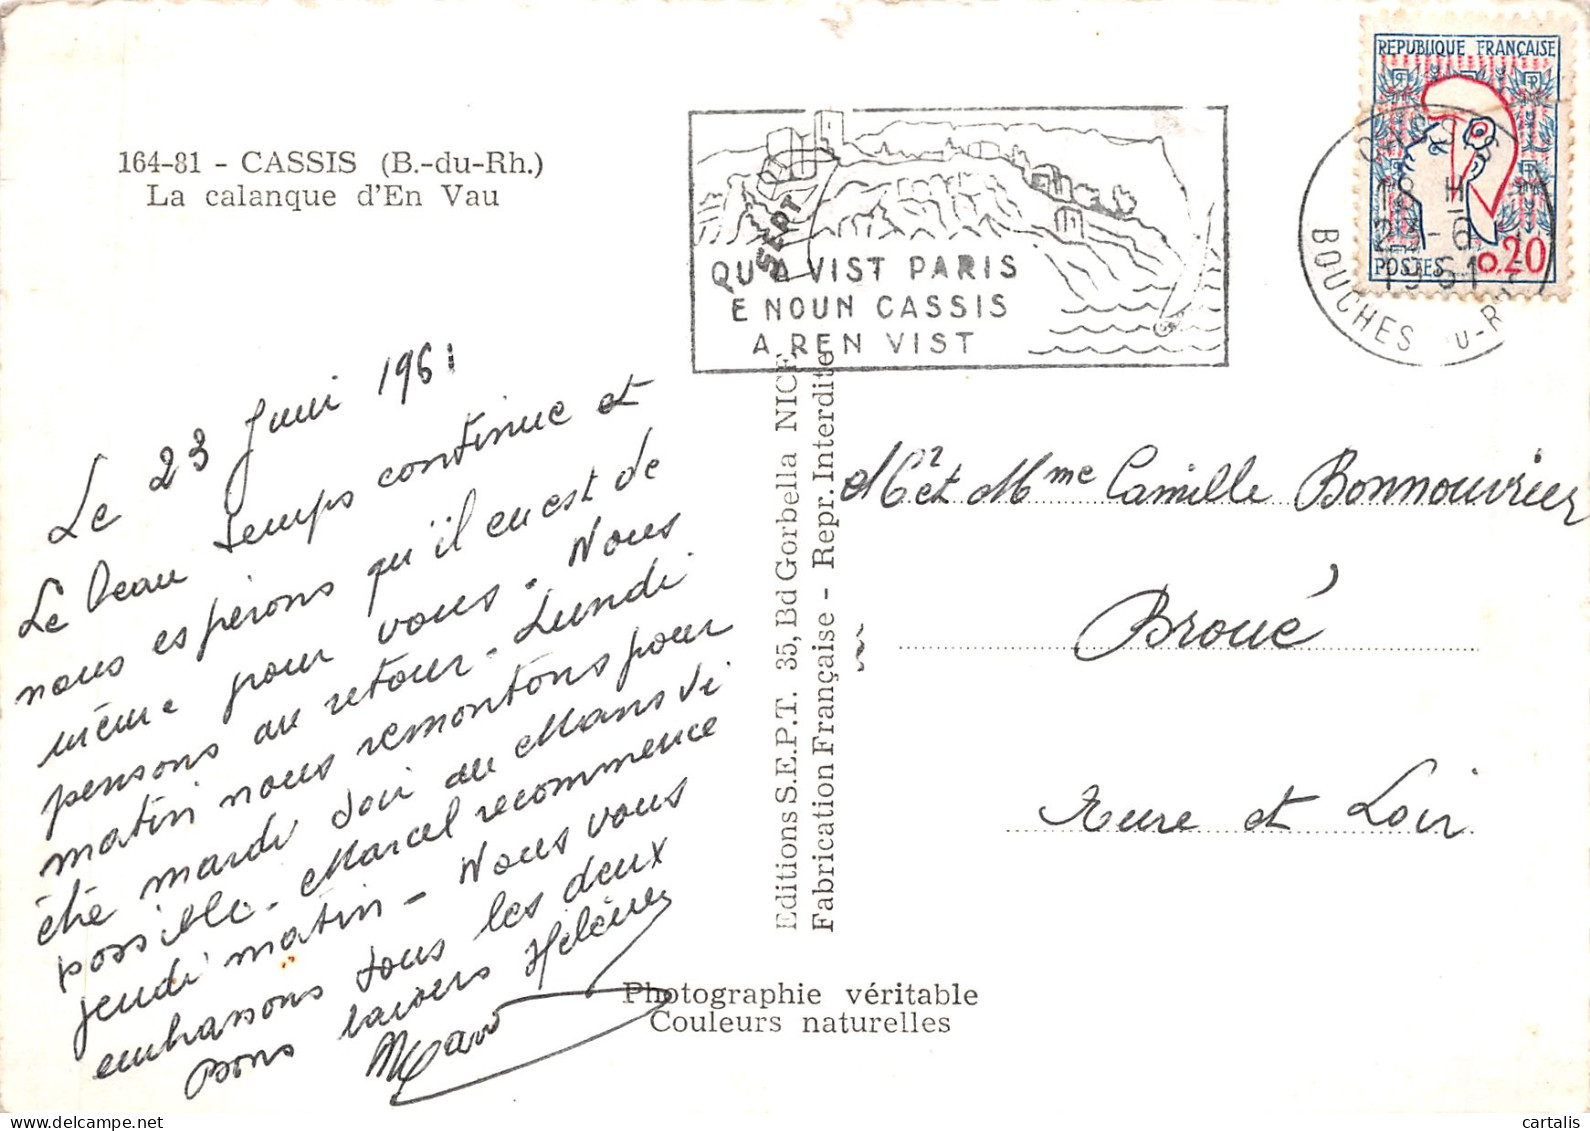 164-81 - CASSIS (B.-du-Rh.)
La calanque d'En Vau
QU A VIST PARIS
E NOUN CASSIS
A REN VIST
SEPT
REPUBLIQUE FRANÇAISE
POSTES 0.20
CASSIS
18 H
23-6
1961
BOUCHES DU-RH
Le 23 Juin 1961
Le beau temps continue et
nous espérons qu'il en est de
même pour vous. Nous
pensons au retour. Lundi
matin nous remontons pour
être mardi soir au Mans si
possible. Marcel recommence
jeudi matin - Nous vous
embrassons tous les deux
Bons baisers Hélène
Editions S.E.P.T. 35, Bd Gorbella NICE
Fabrication Française - Repr. Interdite
Mr et Mme Camille Bonnouvrier
Broué
Eure et Loir
Photographie véritable
Couleurs naturelles
cartalis
delcampe.net